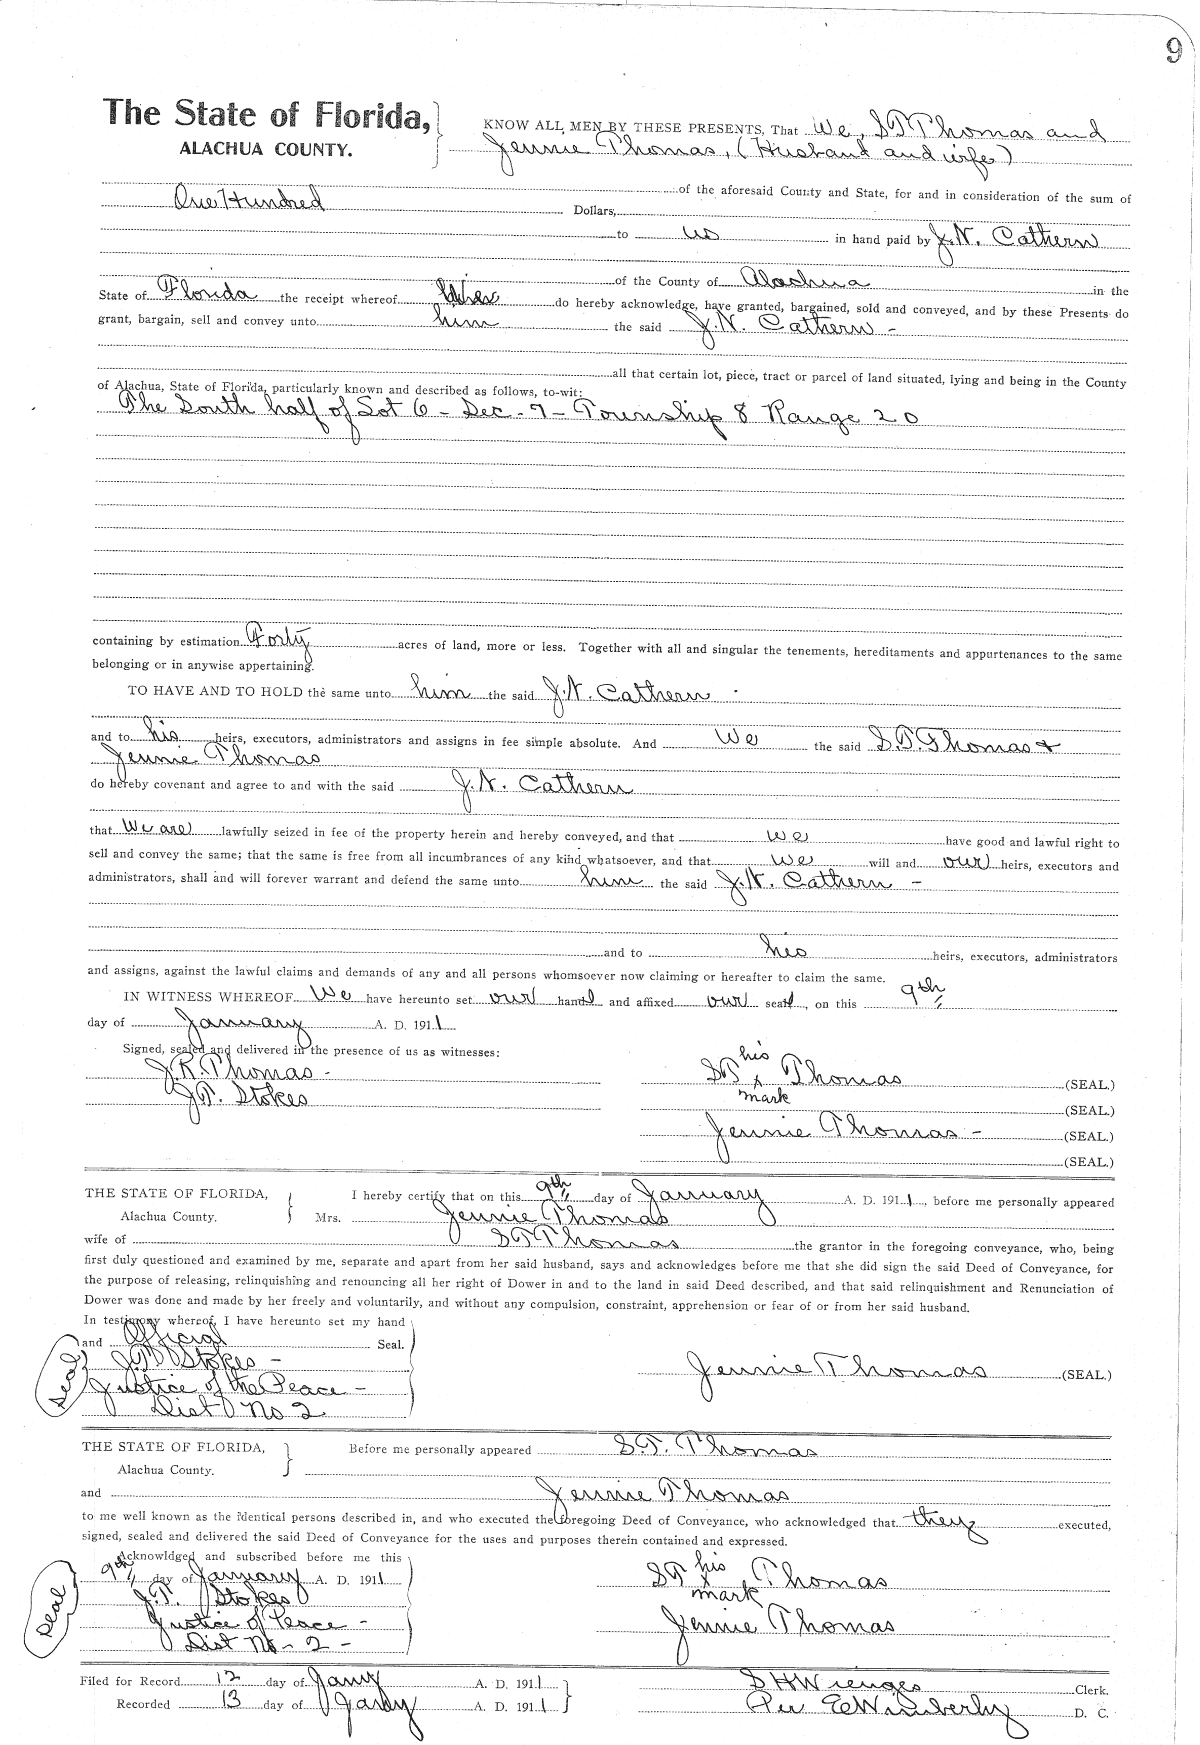 9
The State of Florida,
ALACHUA COUNTY.
KNOW ALL MEN BY THESE PRESENTS, That We, S T Thomas and
Jennie Thomas, (Husband and wife)
of the aforesaid County and State, for and in consideration of the sum of
One Hundred Dollars,
to us in hand paid by J. N. Cathern
of the County of Alachua in the
State of Florida the receipt whereof do hereby acknowledge, have granted, bargained, sold and conveyed, and by these Presents do
grant, bargain, sell and convey unto him the said J. N. Cathern -
all that certain lot, piece, tract or parcel of land situated, lying and being in the County
of Alachua, State of Florida, particularly known and described as follows, to-wit:
The South half of Lot 6 - Sec - 7 - Township 8 Range 20
containing by estimation Forty acres of land, more or less. Together with all and singular the tenements, hereditaments and appurtenances to the same
belonging or in anywise appertaining.
TO HAVE AND TO HOLD the same unto him the said J. N. Cathern
and to his heirs, executors, administrators and assigns in fee simple absolute. And We the said S. T. Thomas &
Jennie Thomas
do hereby covenant and agree to and with the said J. N. Cathern
that We are lawfully seized in fee of the property herein and hereby conveyed, and that we have good and lawful right to
sell and convey the same; that the same is free from all incumbrances of any kind whatsoever, and that we will and our heirs, executors and
administrators, shall and will forever warrant and defend the same unto him the said J. N. Cathern -
and to his heirs, executors, administrators
and assigns, against the lawful claims and demands of any and all persons whomsoever now claiming or hereafter to claim the same.
IN WITNESS WHEREOF We have hereunto set our hand and affixed our seal, on this 9th
day of January A. D. 1911.
Signed, sealed and delivered in the presence of us as witnesses:
J. R. Thomas -
J. T. Stokes
his
S T x Thomas (SEAL.)
mark
(SEAL.)
Jennie Thomas - (SEAL.)
(SEAL.)
THE STATE OF FLORIDA,
Alachua County.
I hereby certify that on this 9th day of January A. D. 1911, before me personally appeared
Mrs. Jennie Thomas
wife of S T Thomas the grantor in the foregoing conveyance, who, being
first duly questioned and examined by me, separate and apart from her said husband, says and acknowledges before me that she did sign the said Deed of Conveyance, for
the purpose of releasing, relinquishing and renouncing all her right of Dower in and to the land in said Deed described, and that said relinquishment and Renunciation of
Dower was done and made by her freely and voluntarily, and without any compulsion, constraint, apprehension or fear of or from her said husband.
In testimony whereof, I have hereunto set my hand
and Official Seal.
J. T. Stokes -
Justice of the Peace -
Dist No 2
Seal
Jennie Thomas (SEAL.)
THE STATE OF FLORIDA,
Alachua County.
Before me personally appeared S. T. Thomas
and Jennie Thomas
to me well known as the identical persons described in, and who executed the foregoing Deed of Conveyance, who acknowledged that they executed,
signed, sealed and delivered the said Deed of Conveyance for the uses and purposes therein contained and expressed.
Acknowldged and subscribed before me this
9th day of January A. D. 1911
J. T. Stokes
Justice of Peace -
Dist No - 2 -
Seal
his
S T x Thomas
mark
Jennie Thomas
Filed for Record 12 day of Jany A. D. 1911
Recorded 13 day of Jany A. D. 1911
S H Wienges Clerk.
Per E Wimberly D. C.